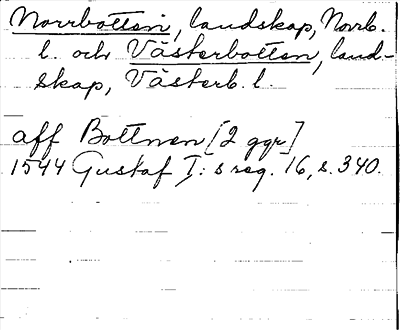 Norrbotten, landskap, Norrb.
l. och Västerbotten, land-
skap, Västerb. l.
aff Bottnen [2 ggr]
1544 Gustaf I:s reg. 16, s. 340.